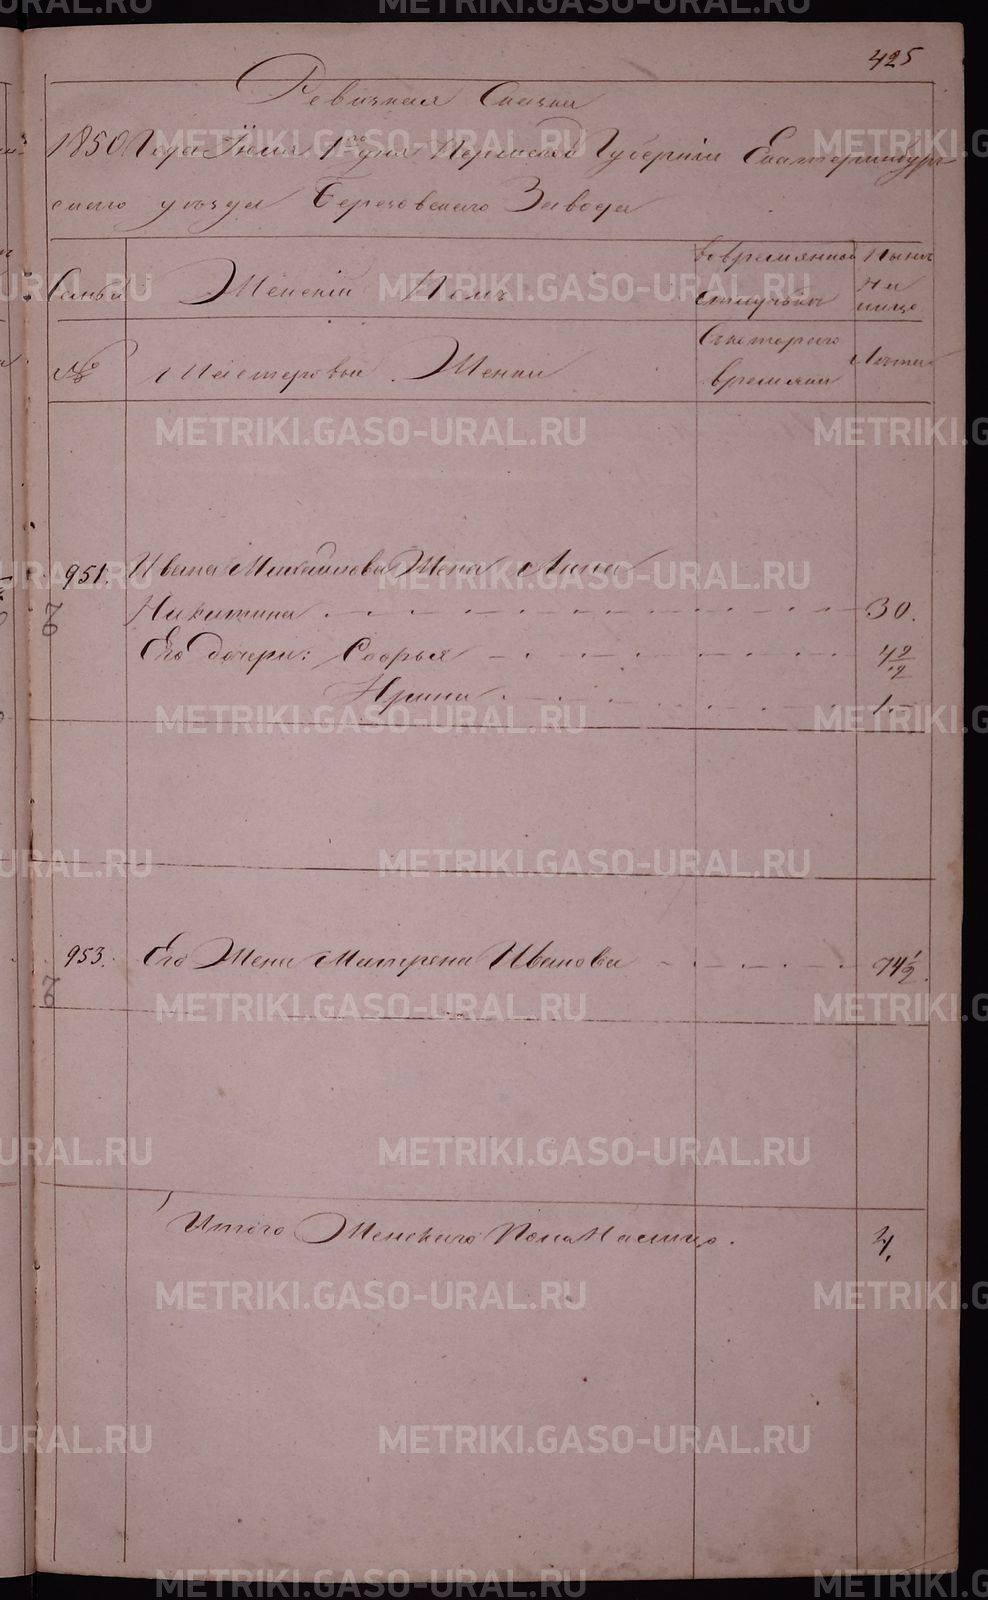 425
Ревизская Сказка
1850 Года Июля 1го дня Пермской Губернiи Екатеринбург
скаго уѣзда Березовскаго Завода
Семьи
Женскiй Полъ
Во временной
отлучкѣ
Нынѣ
на
лицо
№
Мастеровыя Женки
Съкотораго
времяни
Лѣта
951. Ивана Михайлова Жена Анна
Никитина 30.
Его дочери: Софья 4 2/2
Ирина 1.
953. Его Жена Матрена Иванова 74 1/2.
Итого Женскаго Пола Налицо. 4.
METRIKI.GASO-URAL.RU